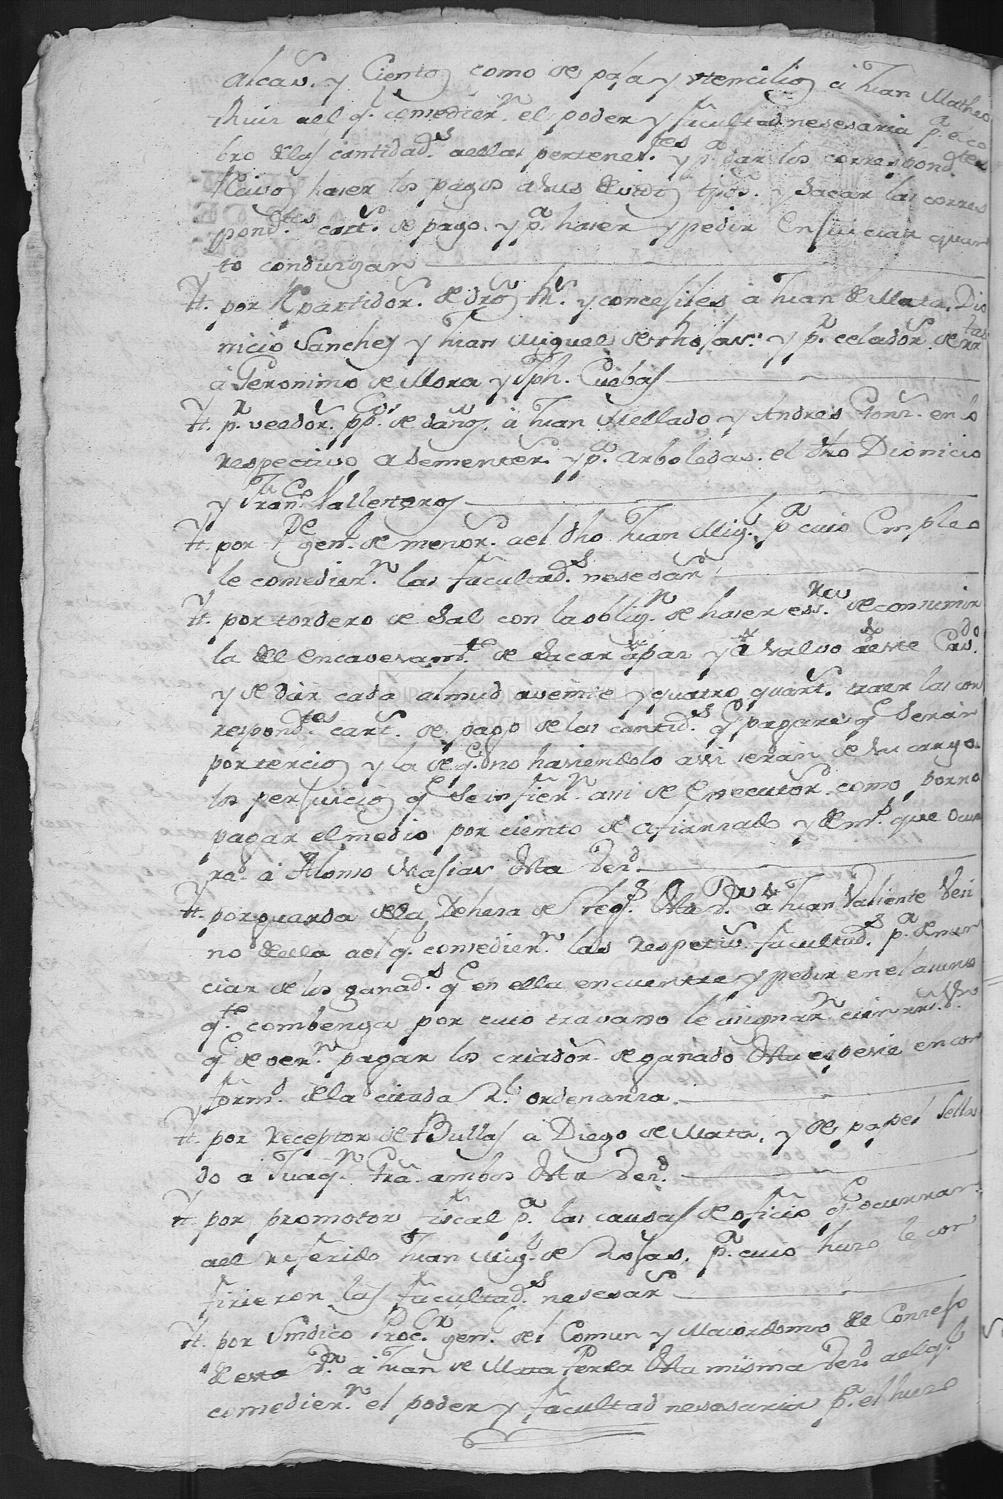 Alcav.s y Cientos como de paja y Utencilios à Juan Matheo
Ruiz a el q.e comedier.n el poder y facultad nesesaria p.a el co
bro de las cantidad.s a ellas pertenes.tes y p.a dar los correspond.tes
Recivos haser los pagos a sus devidos tpos. y sacar las corres
pond.tes cart.s de pago, y p.a haser y pedir en juiciar quan
to condusgan
Yt. por Repartidor.s de dros R.s y consejiles à Juan de Mata, Dio
nicio Sanches y Juan Miguel de Rojas.. y p.a celador.s de
à Geronimo de Mora y Jph. Cuebas
Yt. p.r veedor.s pp.cos de daños. à Juan Mellado y Andres Gonz.s en lo
respectivo a sementer.s y p.a arboledas. el dho Dionicio
y Fran.co Vallesteros
Yt. por P.e gen.l de menor.s a el dho Juan Mig.l p.a cuio Empleo
le comedier.n las facultad.s nesesar.s
Yt. por tordero de Sal con la oblig.n de haser ess.ra de consumir
la del encavesam.to de sacar à paz y à salvo à este Cav.do
y de dar cada almud a veinte y quatro quart.s traer las cor
respond.tes cart.s de pago de las cantid.s q.e pagare q.e seràn
por tercios y la de q.e no haviendolo assi seràn de su cargo
los perjuicios q.e se infier.n assi de Executor.s como por no
pagar el medio por ciento de afiansado y demas que ocur
ra. à Alonso Masias desta Vez.d
Yt. por guarda de la Dehesa de desta V.a à Juan Valiente Vesi
no de ella a el q.e comedier.n las respetiv.s facultad.s p.a denun
ciar de los ganad.s q.e en ella encuentre y pedir en el asunto
q.to combenga por cuio travajo le asignar.n cien
q.e de ver.n pagar los criador.s de ganado desta espesie en con
form.d de la citada R.l ordenanza
Yt. por Receptor de Bullas à Diego de Mata, y de papel Sella
do à Juaq.n ambos desta Vez.d
Yt. por promotor fiscal p.a las causas de oficio q.e ocurran
a el referido Juan Mig.l de Rojas. p.a cuio huso le con
firieron las facultad.s nesesar.s
Yt. por Sindico Proc.r gen.l del Comun y Maiordomo de Consejo
de esta V.a à Juan de Mata desta misma Vez.d a el q.l
comedier.n el poder y facultad nesesaria p.a el huso